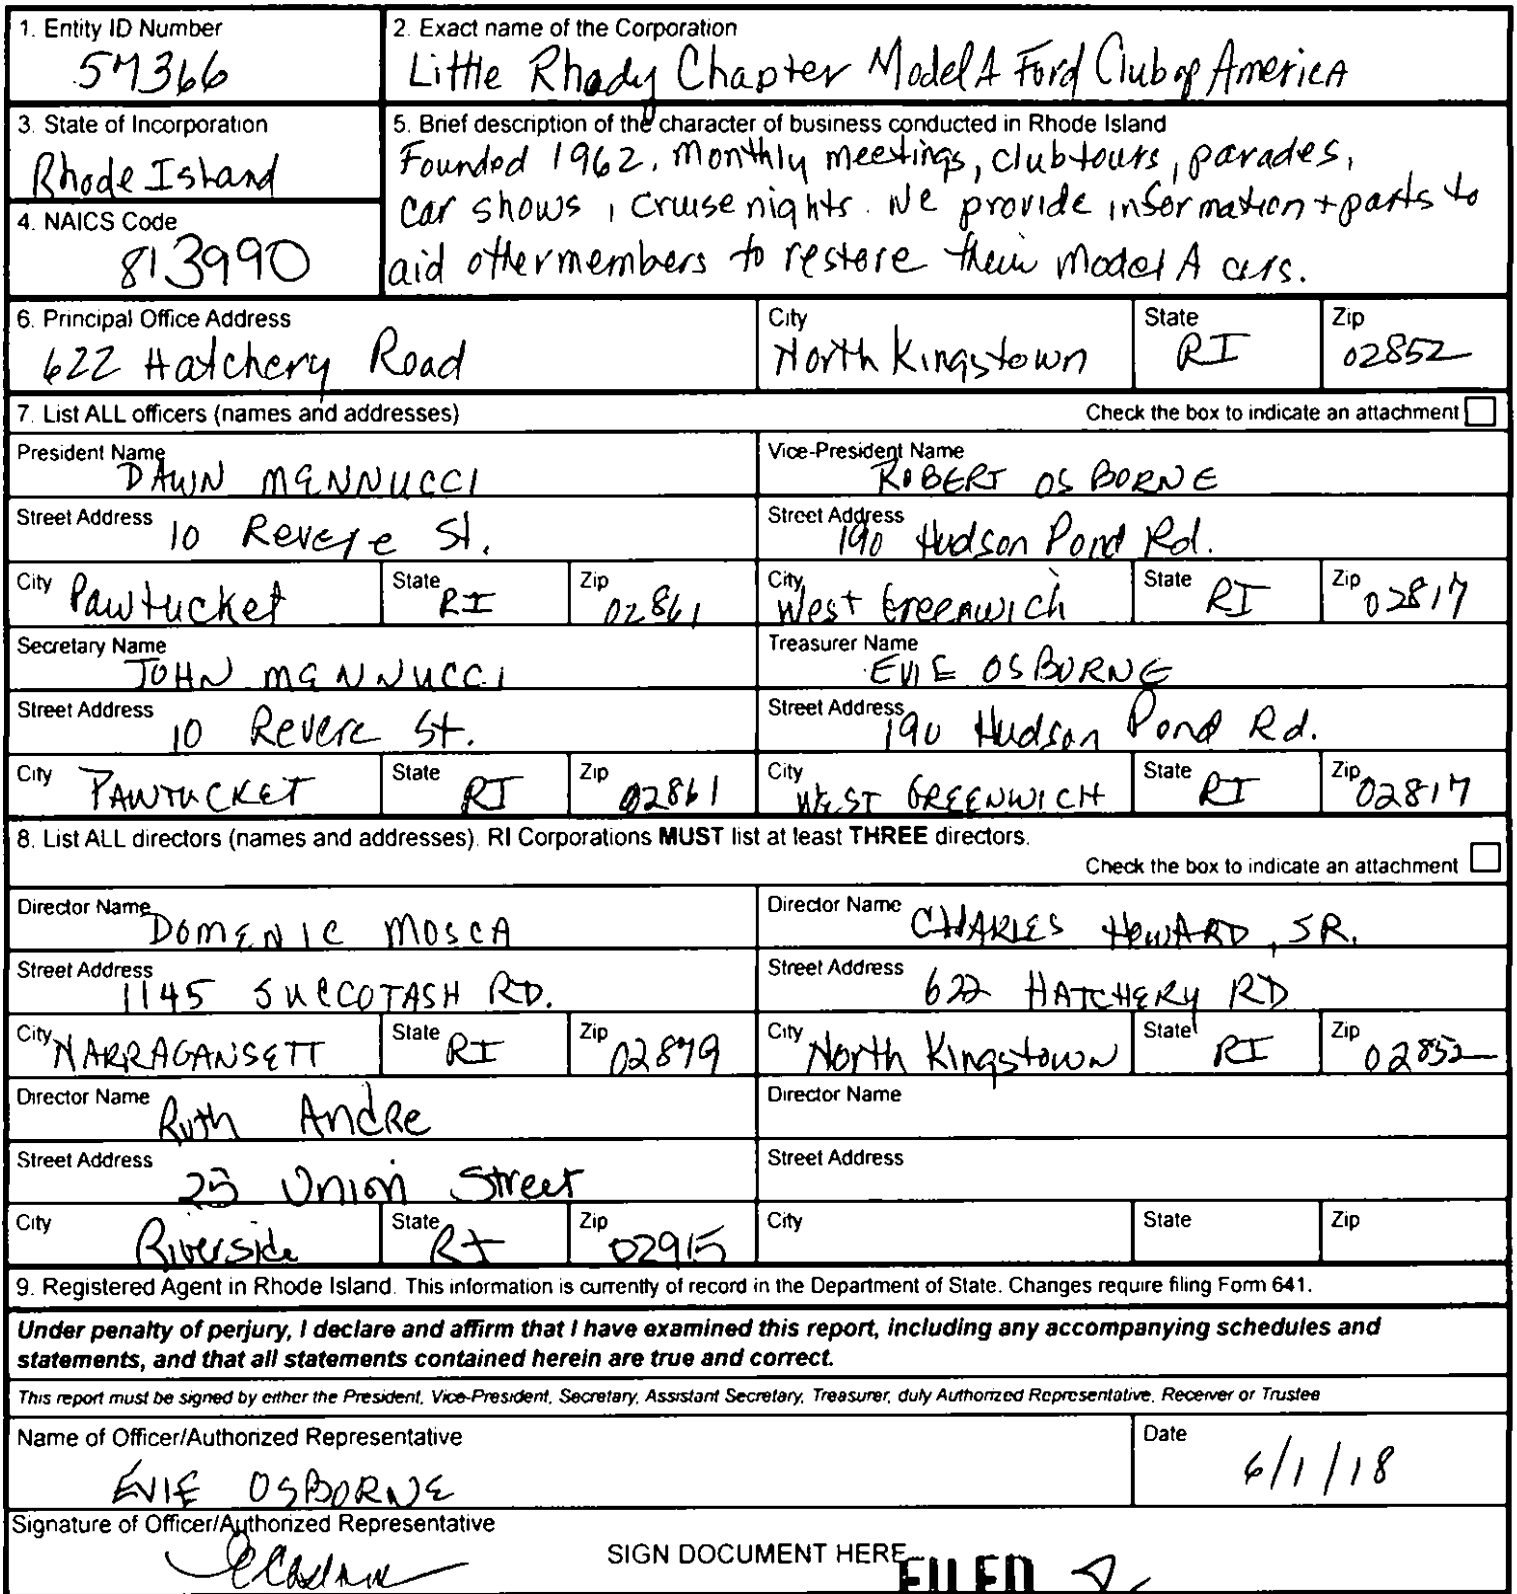 1. Entity ID Number
57366
2. Exact name of the Corporation
Little Rhody Chapter Model A Ford Club of America
3. State of Incorporation
Rhode Island
4. NAICS Code
813990
5. Brief description of the character of business conducted in Rhode Island
Founded 1962. Monthly meetings, club tours, parades,
car shows, cruise nights. We provide information + parts to
aid other members to restore their Model A cars.
6. Principal Office Address
622 Hatchery Road
City
North Kingstown
State
RI
Zip
02852
7. List ALL officers (names and addresses)
Check the box to indicate an attachment
President Name
DAWN MENNUCCI
Vice-President Name
ROBERT OSBORNE
Street Address 10 Revere St.
Street Address 190 Hudson Pond Rd.
City Pawtucket State RI Zip 02861
City West Greenwich State RI Zip 02817
Secretary Name
JOHN MENNUCCI
Treasurer Name
EVIE OSBORNE
Street Address 10 Revere St.
Street Address 190 Hudson Pond Rd.
City PAWTUCKET State RI Zip 02861
City WEST GREENWICH State RI Zip 02817
8. List ALL directors (names and addresses). RI Corporations MUST list at least THREE directors.
Check the box to indicate an attachment
Director Name DOMENIC MOSCA
Director Name CHARLES HOWARD, SR.
Street Address 1145 SUCCOTASH RD.
Street Address 622 HATCHERY RD
City NARRAGANSETT State RI Zip 02879
City North Kingstown State RI Zip 02852
Director Name Ruth Andre
Director Name
Street Address 25 Union Street
Street Address
City Riverside State RI Zip 02915
City State Zip
9. Registered Agent in Rhode Island. This information is currently of record in the Department of State. Changes require filing Form 641.
Under penalty of perjury, I declare and affirm that I have examined this report, including any accompanying schedules and
statements, and that all statements contained herein are true and correct.
This report must be signed by either the President, Vice-President, Secretary, Assistant Secretary, Treasurer, duly Authorized Representative, Receiver or Trustee
Name of Officer/Authorized Representative
EVIE OSBORNE
Date
6/1/18
Signature of Officer/Authorized Representative
SIGN DOCUMENT HERE
FILED